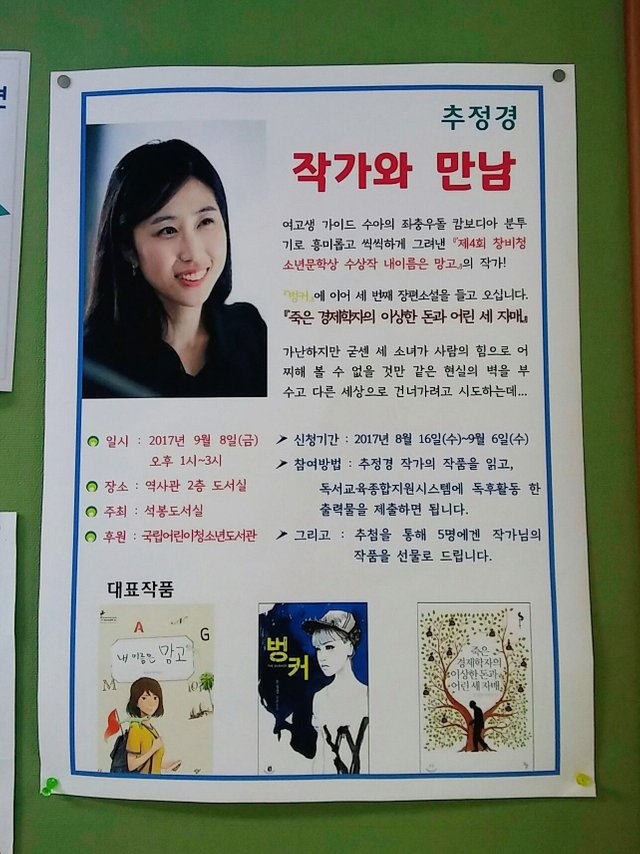 추정경
작가와 만남
여고생 가이드 수아의 좌충우돌 캄보디아 분투
기로 흥미롭고 씩씩하게 그려낸 『제4회 창비청
소년문학상 수상작 내이름은 망고』의 작가!
『벙커』에 이어 세 번째 장편소설을 들고 오십니다.
『죽은 경제학자의 이상한 돈과 어린 세 자매』
가난하지만 굳센 세 소녀가 사람의 힘으로 어
찌해 볼 수 없을 것만 같은 현실의 벽을 부
수고 다른 세상으로 건너가려고 시도하는데...
일시 : 2017년 9월 8일(금)
오후 1시~3시
장소 : 역사관 2층 도서실
주최 : 석봉도서실
후원 : 국립어린이청소년도서관
➤ 신청기간 : 2017년 8월 16일(수)~9월 6일(수)
➤ 참여방법 : 추정경 작가의 작품을 읽고,
독서교육종합지원시스템에 독후활동 한
출력물을 제출하면 됩니다.
➤ 그리고 : 추첨을 통해 5명에겐 작가님의
작품을 선물로 드립니다.
대표작품
A G
내 이름은 망고
M
벙커
죽은
경제학자의
이상한 돈과
어린 세 자매